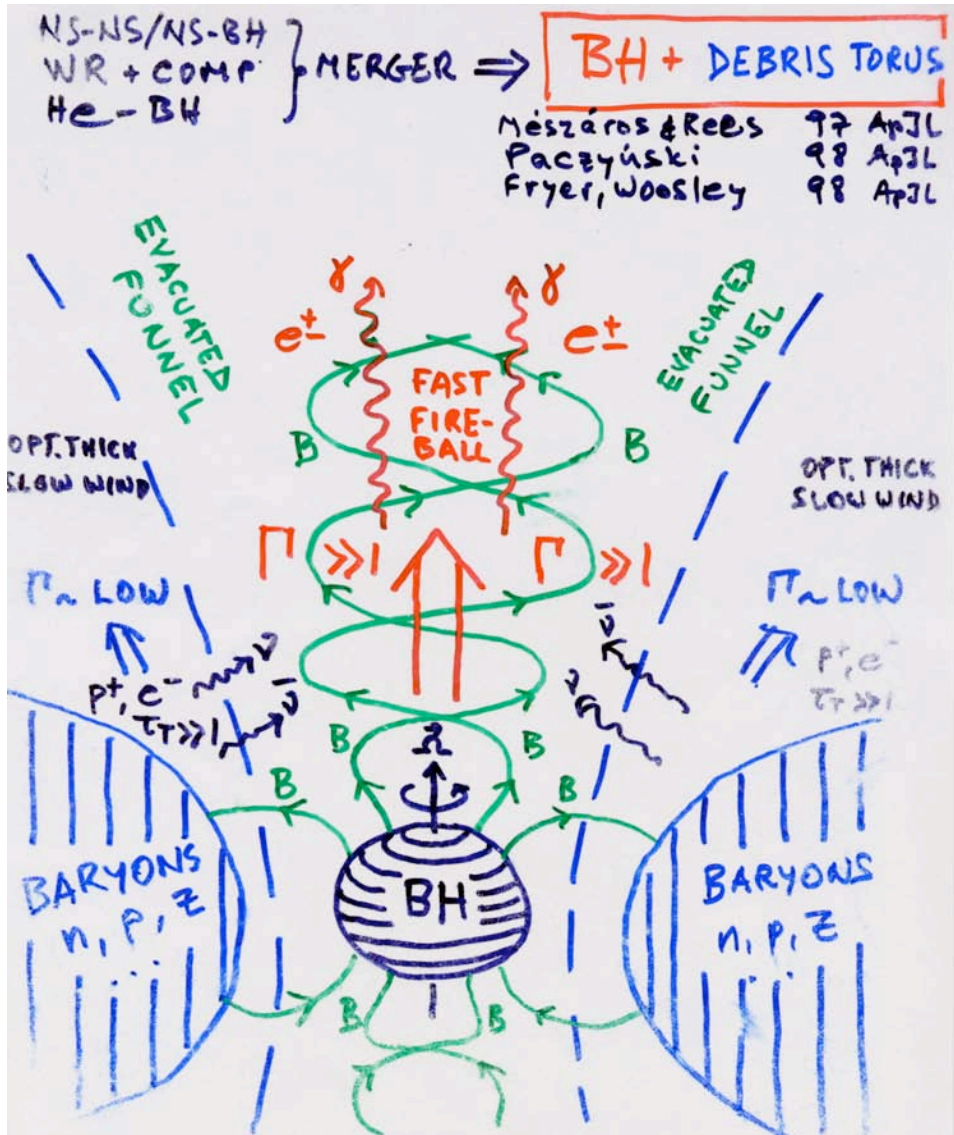 NS-NS/NS-BH
WR + COMP
He-BH
} MERGER ⇒
BH + DEBRIS TORUS
Mészáros & Rees 97 ApJL
Paczyński 98 ApJL
Fryer, Woosley 98 ApJL
EVACUATED
FUNNEL
EVACUATED
FUNNEL
γ
γ
e±
e±
FAST
FIRE-
BALL
B
B
OPT. THICK
SLOW WIND
OPT. THICK
SLOW WIND
Γ ≫ 1
Γ ≫ 1
Γ ~ LOW
Γ ~ LOW
p⁺, e⁻
τT ≫ 1
ν
ν̄
ν̄
ν
p⁺, e⁻
τT ≫ 1
B
Ω
B
B
B
BH
BARYONS
n, p, Z
...
BARYONS
n, p, Z
...
B
B